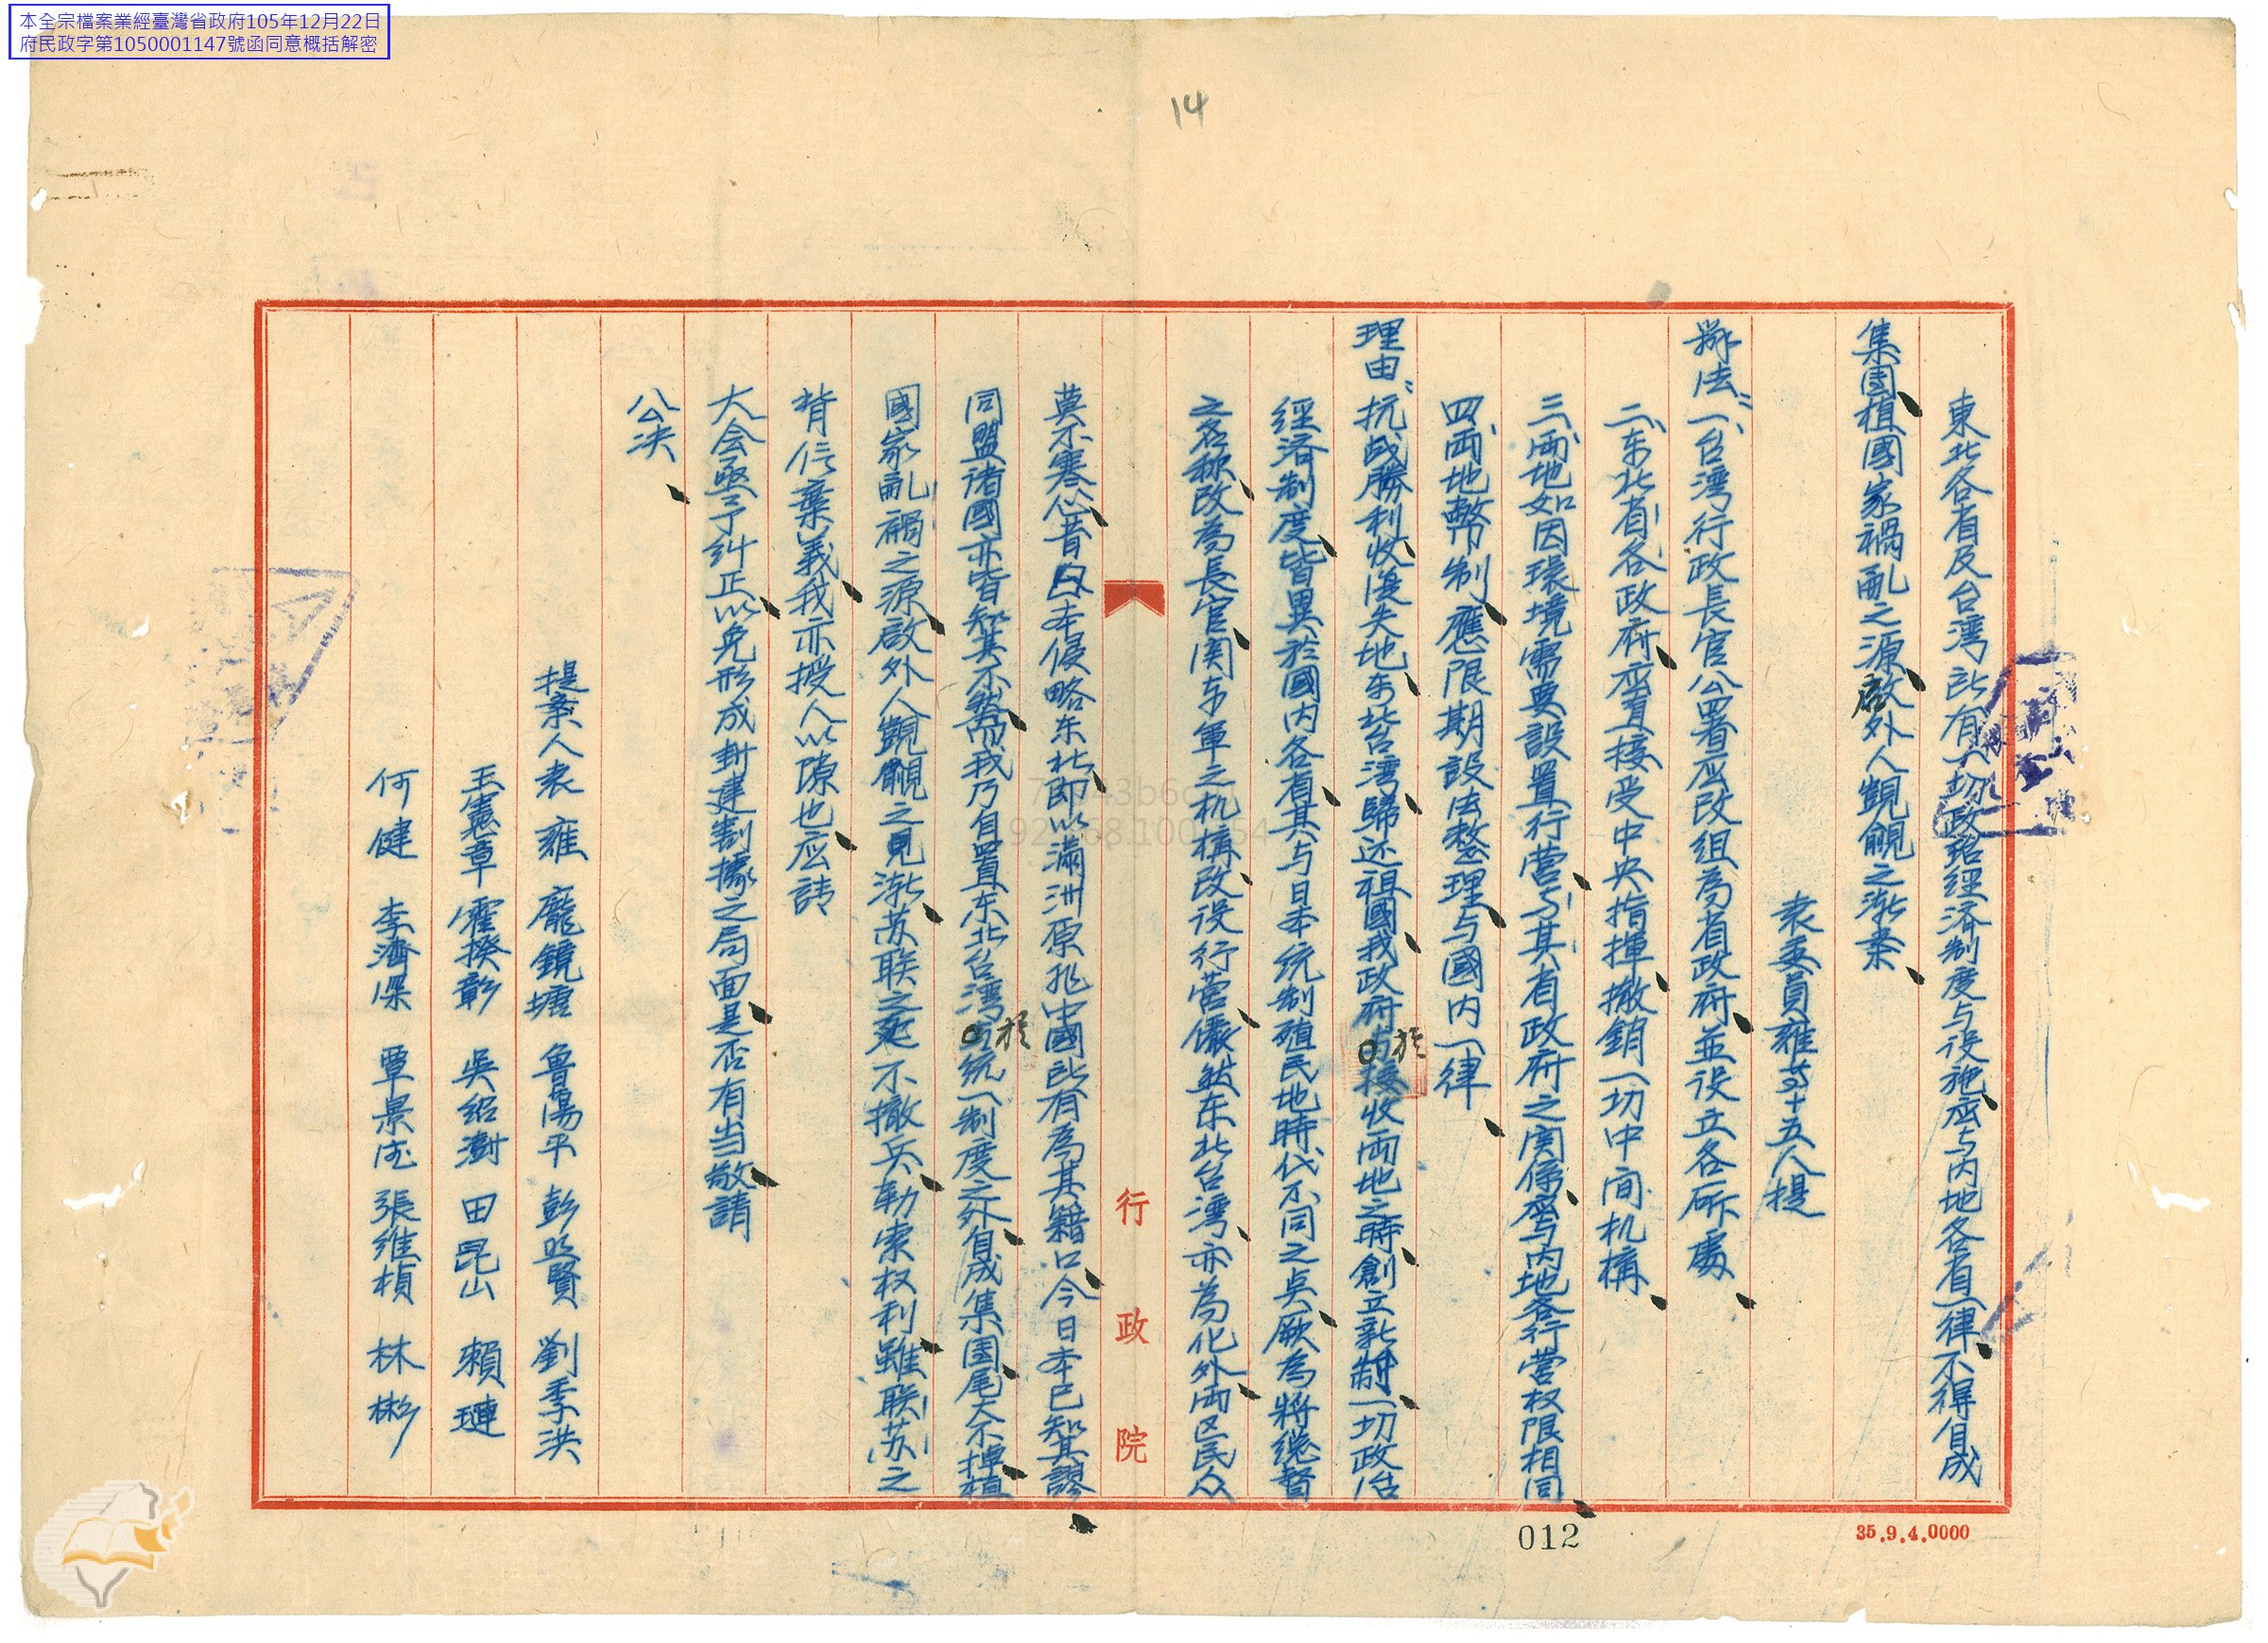 本全宗檔案業經臺灣省政府105年12月22日
府民政字第1050001147號函同意概括解密
14
東北各省及台湾所有一切政治經济制度与设施应与内地各省一律不得自成
集團植國家禍亂之源啟外人覬覦之漸案
袁委員雍等十五人提
辦法：一、台湾行政長官公署应改組為省政府並设立各所處
二、东北省各政府应直接受中央指揮撤銷一切中间机構
三、兩地如因環境需要設置行营与其省政府之関係应与内地各行营权限相同
四、兩地幣制應限期設法整理与國内一律
理由：抗战勝利收復失地东北台湾歸还祖國我政府於接收两地之時創立新制一切政治
經济制度皆異於國内各省其与日本统制殖民地時代不同之奌厥為將總督
之名称改為長官関东軍之机構改设行营儼然东北台湾亦為化外两区民众
莫不寒心昔日本侵略东北即以滿洲原非中國所有為其籍口今日本已知其謬
同盟诸國亦皆知其不然而我乃自置东北台湾於统一制度之外自成集團尾大不掉植
國家亂禍之源啟外人覬覦之見漸苏联之延不撤兵勒索权利雖联苏之
背信棄義我亦授人以隙也应請
大会亟予纠正以免形成封建割據之局面是否有当敬請
公决
提案人袁雍 龐鏡塘 魯蕩平 彭昭賢 劉季洪
王憲章 霍揆彰 吳绍澍 田昆山 賴璉
何健 李濟深 覃景 張維楨 林彬
行政院
012
35.9.4.0000